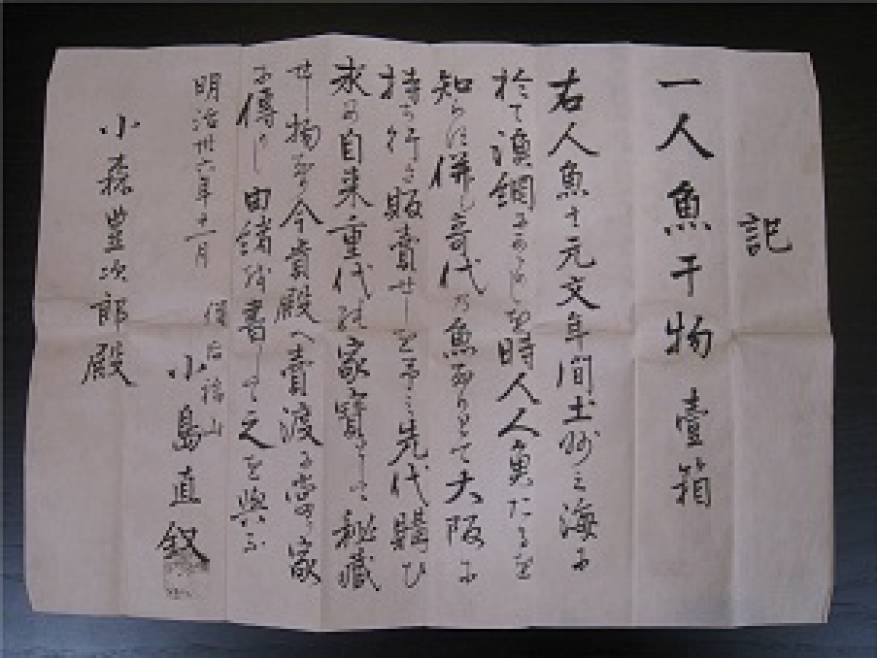 記
一人魚干物壹箱
右人魚ハ元文年間土州之海に
於て漁網にかかりしを時人人魚たるを
知らに併し奇代乃魚なりとて大阪に
持ち行き販賣せしを 先代購ひ
求め自来重代の家寳として秘蔵
せし物なり今貴殿へ賣渡に當り家
に傳りし由緒を書して之を與ふ
明治卅六年十一月
備后福山
小島直叙
小森豊次郎殿